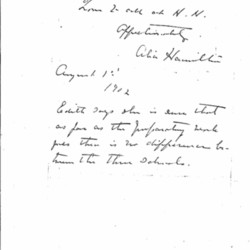 Love to all at H. H.
Affectionately
Alice Hamilton
August 1st
1912
Edith says she is sure that
as far as the preparatory work
goes there is no difference be-
tween the three schools.